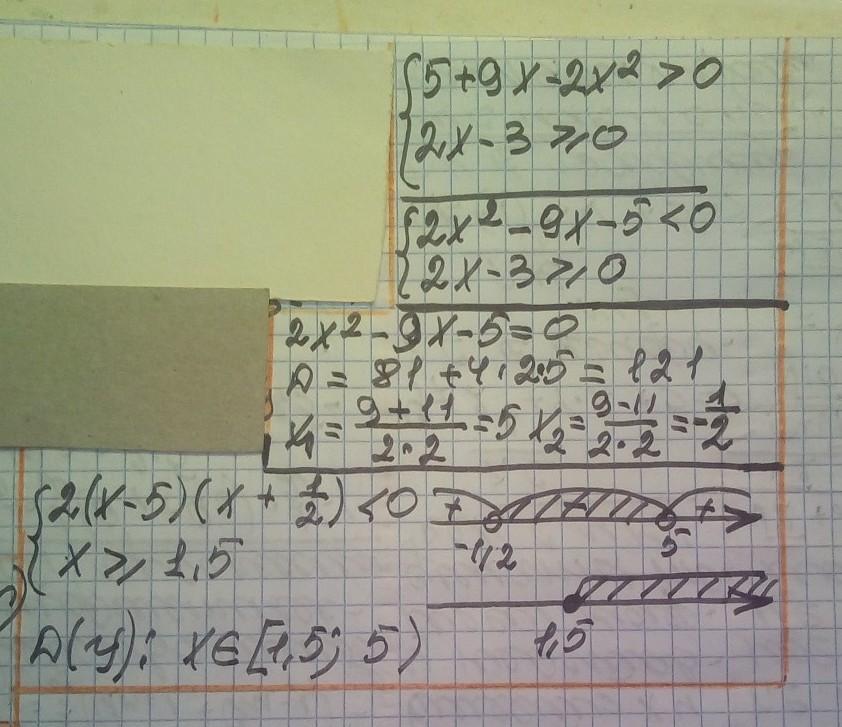 {5+9x-2x²>0
{2x-3≥0
{2x²-9x-5<0
{2x-3≥0
2x²-9x-5=0
D= 81+4·2·5= 121
x₁= (9+11)/(2·2) =5 x₂= (9-11)/(2·2) = -1/2
{2(x-5)(x+1/2)<0
+ - +
-1/2 5
{x≥1,5
1,5
D(y): x∈[1,5; 5)